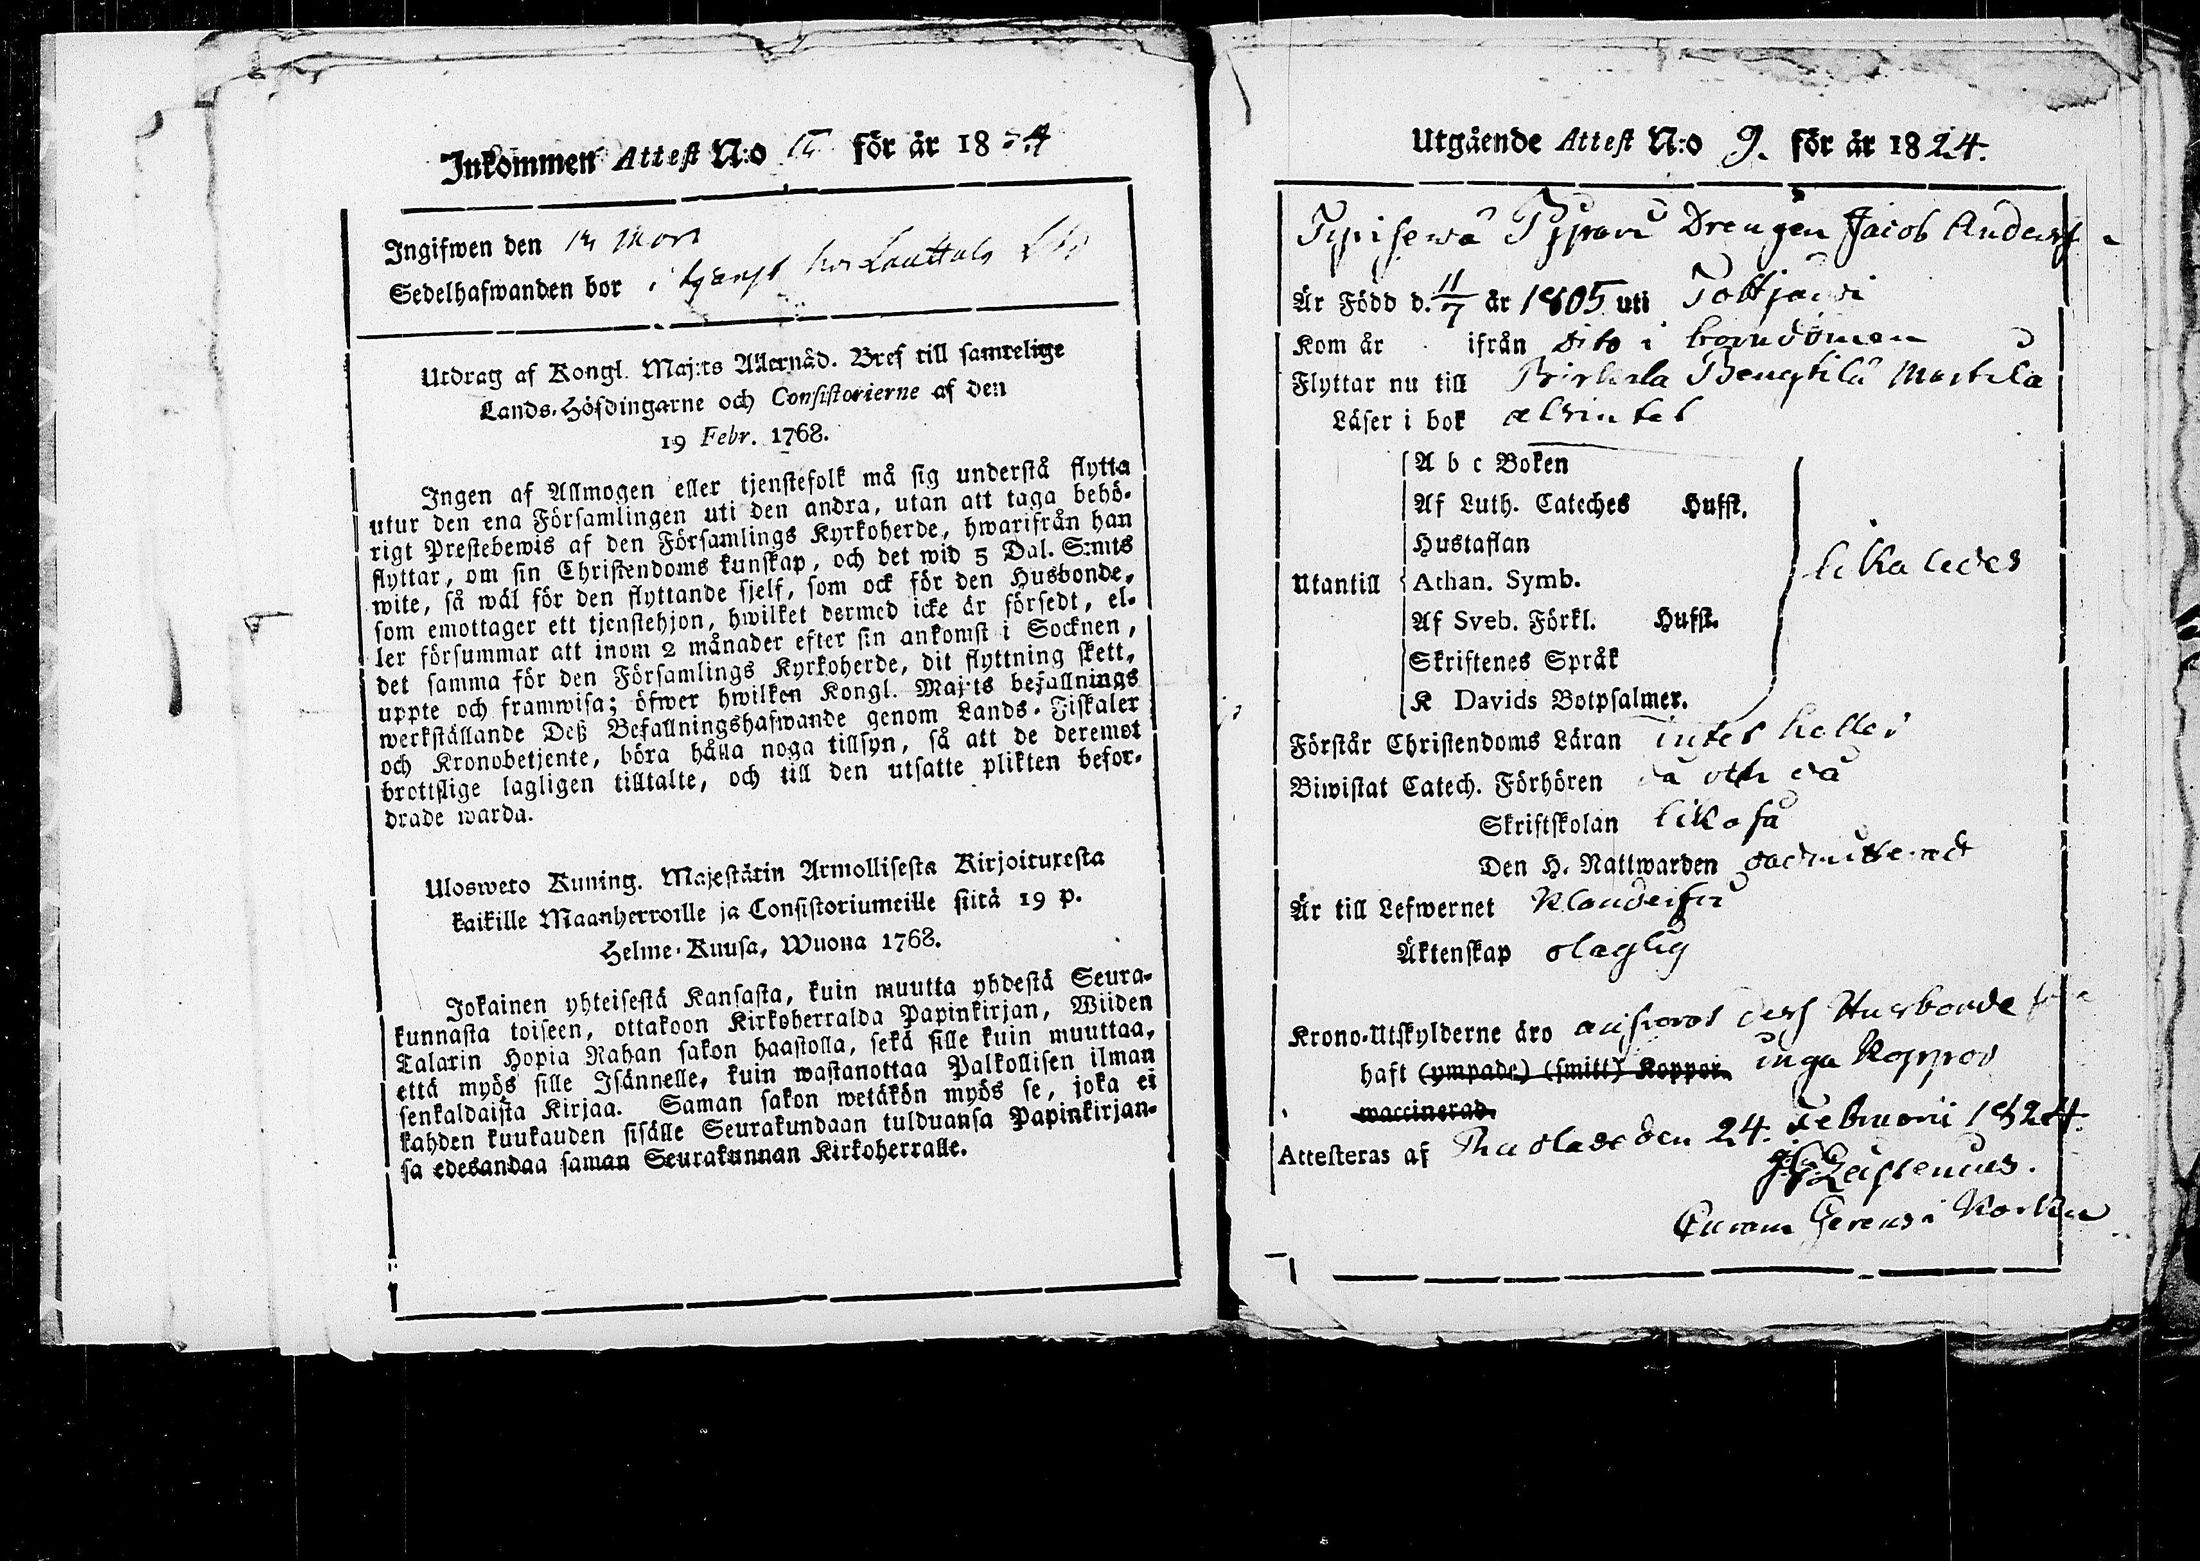 Inkommen Attest N:o för år 18 4
Ingifwen den 14 Mars
Sedelhafwanden bor i tjenst hos Lauttala
Utdrag af Kongl. Maj:ts Allernåd. Bref till samtelige
Lands-Höfdingarne och Consistorierne af den
19 Febr. 1768.
Ingen af Allmogen eller tjenstefolk må sig understå flytta
utur den ena Församlingen uti den andra, utan att taga behö-
rigt Prestebewis af den Församlings Kyrkoherde, hwarifrån han
flyttar, om sin Christendoms kunskap, och det wid 5 Dal. S:mts
wite, så wäl för den flyttande sjelf, som ock för den Husbonde,
som emottager ett tjenstehjon, hwilket dermed icke är försedt, el-
ler försummar att inom 2 månader efter sin ankomst i Socknen,
det samma för den Församlings Kyrkoherde, dit flyttning skett,
uppte och framwisa; öfwer hwilken Kongl. Maj:ts befallnings
werkställande Deß Befallningshafwande genom Lands-Fiskaler
och Kronobetjente, böra hålla noga tillsyn, så att de deremot
brottslige lagligen tilltalte, och till den utsatte plikten befor-
drade warda.
Ulosweto Kuning. Majestätin Armollisesta Kirjoituxesta
kaikille Maanherroille ja Consistoriumeille siitä 19 p.
Helme-Kuusa, Wuona 1768.
Jokainen yhteisestä Kansasta, kuin muutta yhdestä Seura-
kunnasta toiseen, ottakoon Kirkoherralda Papinkirjan, Wiiden
Talarin Hopia Rahan sakon haastolla, sekä sille kuin muuttaa,
että myös sille Isännelle, kuin wastanottaa Palkollisen ilman
senkaldaista Kirjaa. Saman sakon wetäkön myös se, joka ei
kahden kuukauden sisälle Seurakundaan tulduansa Papinkirjan-
sa edesandaa saman Seurakunnan Kirkoherralle.
Utgående Attest N:o 9. för år 1824.
Drengen Jacob Anders
Är Född d. 11/7 år 1805 uti Tottjärvi
Kom år ifrån dito i barndomen
Flyttar nu till Birkala Bengtilä Mattila
Läser i bok alsintet
A b c Boken
Af Luth. Cateches Hufst.
Hustaflan
Utantill Athan. Symb. likaledes
Af Sveb. Förkl. Hufst.
Skriftenes Språk
K Davids Botpsalmer.
Förstår Christendoms Läran intet heller
Biwistat Catech. Förhören då och då
Skriftskolan likaså
Den H. Nattwarden oadmitterad
Är till Lefwernet klanderfri
Äktenskap olaglig
Krono-Utskylderne äro ansvarar dess Husbonde före
haft (ympade) (smitt) Koppor. inga Koppor
waccinerad.
Attesteras af den 24. Februarii 1824.